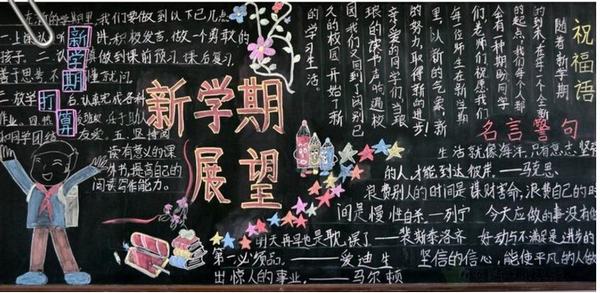 新学期
展望
新学期
打算
在新的学期里，我们要做到以下几点
一上
听讲，积极发言，做一个勤奋的
孩子，二
做到课前预习，课后复习，
善于思考，不懂就问。
二放学
后，认真完成各种
作业，四热
班级，乐于助人
和同学团结友爱，五、坚持阅
读有意义的课
外书，提高自己的
阅读写作能力。
祝福语
随着新学期
的到来，在每一个全新
的起点，我们每个人都
会有一种期盼，同学
们，老师们祝愿我们
每位师生在新学期
里，以新的气象，新
的努力，取得新的进步！
亲爱的同学们，当琅
琅的读书声响遍校
园，我们又回到了阔别已
久的校园，开始了新
的学习生活。
名言警句
生活就像海洋，只有意志坚
的人，才能到达彼岸。——马克思
浪费别人的时间是谋财害命，浪费自己的时
间是慢性自杀——列宁 今天应做的事没有做
明天再早也是耽误了——裴斯泰洛齐 好动与不满足是进步的
第一必须品。——爱迪生 坚信的信心，能使平凡的人做
出惊人的事业。——马尔顿